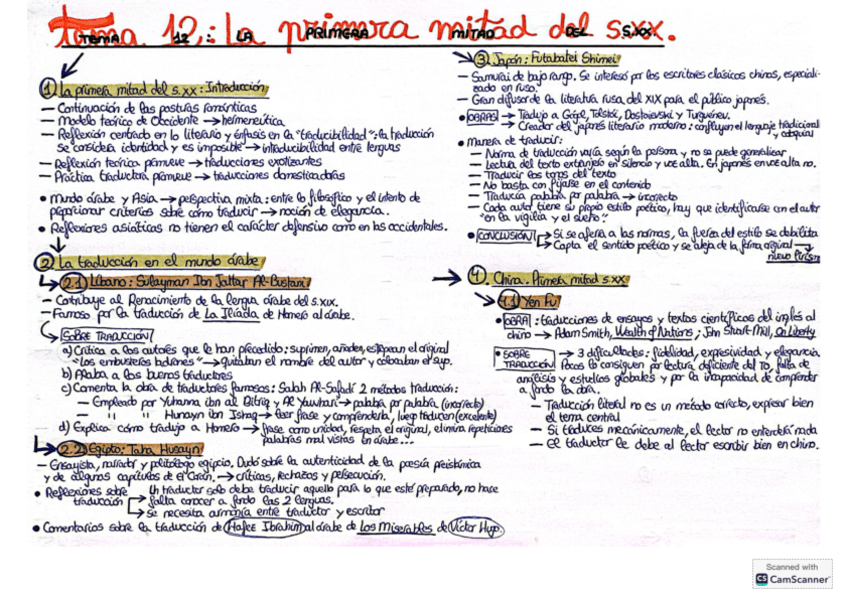 Tema 12: La primera mitad del s.XX.
① La primera mitad del s.XX: Introducción
— Continuación de las posturas románticas
— Modelo teórico de Occidente → hermenéutica
— Reflexión centrada en lo literario y énfasis en la "traducibilidad": la traducción
se considera identidad y es imposible → intraducibilidad entre lenguas
— Reflexión teórica promueve → traducciones exotizantes
— Práctica traductora promueve → traducciones domesticadoras
• Mundo árabe y Asia → perspectiva mixta: entre lo filosófico y el intento de
proporcionar criterios sobre cómo traducir → noción de elegancia.
• Reflexiones asiáticas no tienen el carácter defensivo como en las occidentales.
② La traducción en el mundo árabe
2.1 Líbano: Sulayman Ibn Jattar Al-Bustani
— Contribuye al Renacimiento de la lengua árabe del s.XIX.
— Famoso por la traducción de La Ilíada de Homero al árabe.
SOBRE TRADUCCIÓN
a) Crítica a los autores que le han precedido: suprimen, añaden, estropean el original
"Los embusteros ladrones" → quitaban el nombre del autor y colocaban el suyo.
b) Alaba a los buenos traductores
c) Comenta la obra de traductores famosos: Salah Al-Safadi 2 métodos traducción:
— Empleado por Yuhanna ibn al Bitriq y Al Yawhari → palabra por palabra (incorrecto)
— " " " Hunayn ibn Ishaq → leer frase y comprenderla, luego traducen (excelente)
d) Explica cómo tradujo a Homero → frase como unidad, respeta el original, elimina repeticiones
palabras mal vistas en árabe...
2.2 Egipto: Taha Husayn
— Ensayista, narrador y politólogo egipcio. Dudó sobre la autenticidad de la poesía preislámica
y de algunos capítulos de El Corán. → críticas, rechazos y persecución.
• Reflexiones sobre traducción → Un traductor solo debe traducir aquello para lo que esté preparado, no hace
falta conocer a fondo las 2 lenguas.
→ Se necesita armonía entre traductor y escritor
• Comentarios sobre la traducción de Hafez Ibrahim al árabe de Los Miserables de Víctor Hugo.
③ Japón: Futabatei Shimei
— Samurai de bajo rango. Se interesó por los escritores clásicos chinos, especiali-
zado en ruso.
— Gran difusor de la literatura rusa del XIX para el público japonés.
• OBRAS → Tradujo a Gógol, Tolstói, Dostoievski y Turguénev.
→ Creador del japonés literario moderno: confluyen el lenguaje tradicional
y coloquial
• Manera de traducir:
— Norma de traducción varía según la persona y no se puede generalizar
— Lectura del texto extranjero en silencio y voz alta. En japonés en voz alta no.
— Traducir los tonos del texto
— No basta con fijarse en el contenido
— Traducía palabra por palabra → incorrecto
— Cada autor tiene su propio estilo poético, hay que identificarse con el autor
"en la vigilia y el sueño".
• CONCLUSIÓN → Si se aferra a las normas, la fuerza del estilo se debilita
→ Capta el sentido poético y se aleja de la forma original →
④. China. Primera mitad s.XX
4.1 Yen Fu
• OBRA: traducciones de ensayos y textos científicos del inglés al
chino → Adam Smith, Wealth of Nations; John Stuart-Mill, On Liberty
• SOBRE TRADUCCIÓN → 3 dificultades: fidelidad, expresividad y elegancia.
Pocos lo consiguen por lectura deficiente del TO, falta de
análisis y estudios globales y por la incapacidad de comprender
a fondo la obra.
— Traducción literal no es un método correcto, expresar bien
el tema central
— Si traduces mecánicamente, el lector no entenderá nada
— El traductor le debe al lector escribir bien en chino.
Scanned with
CS CamScanner